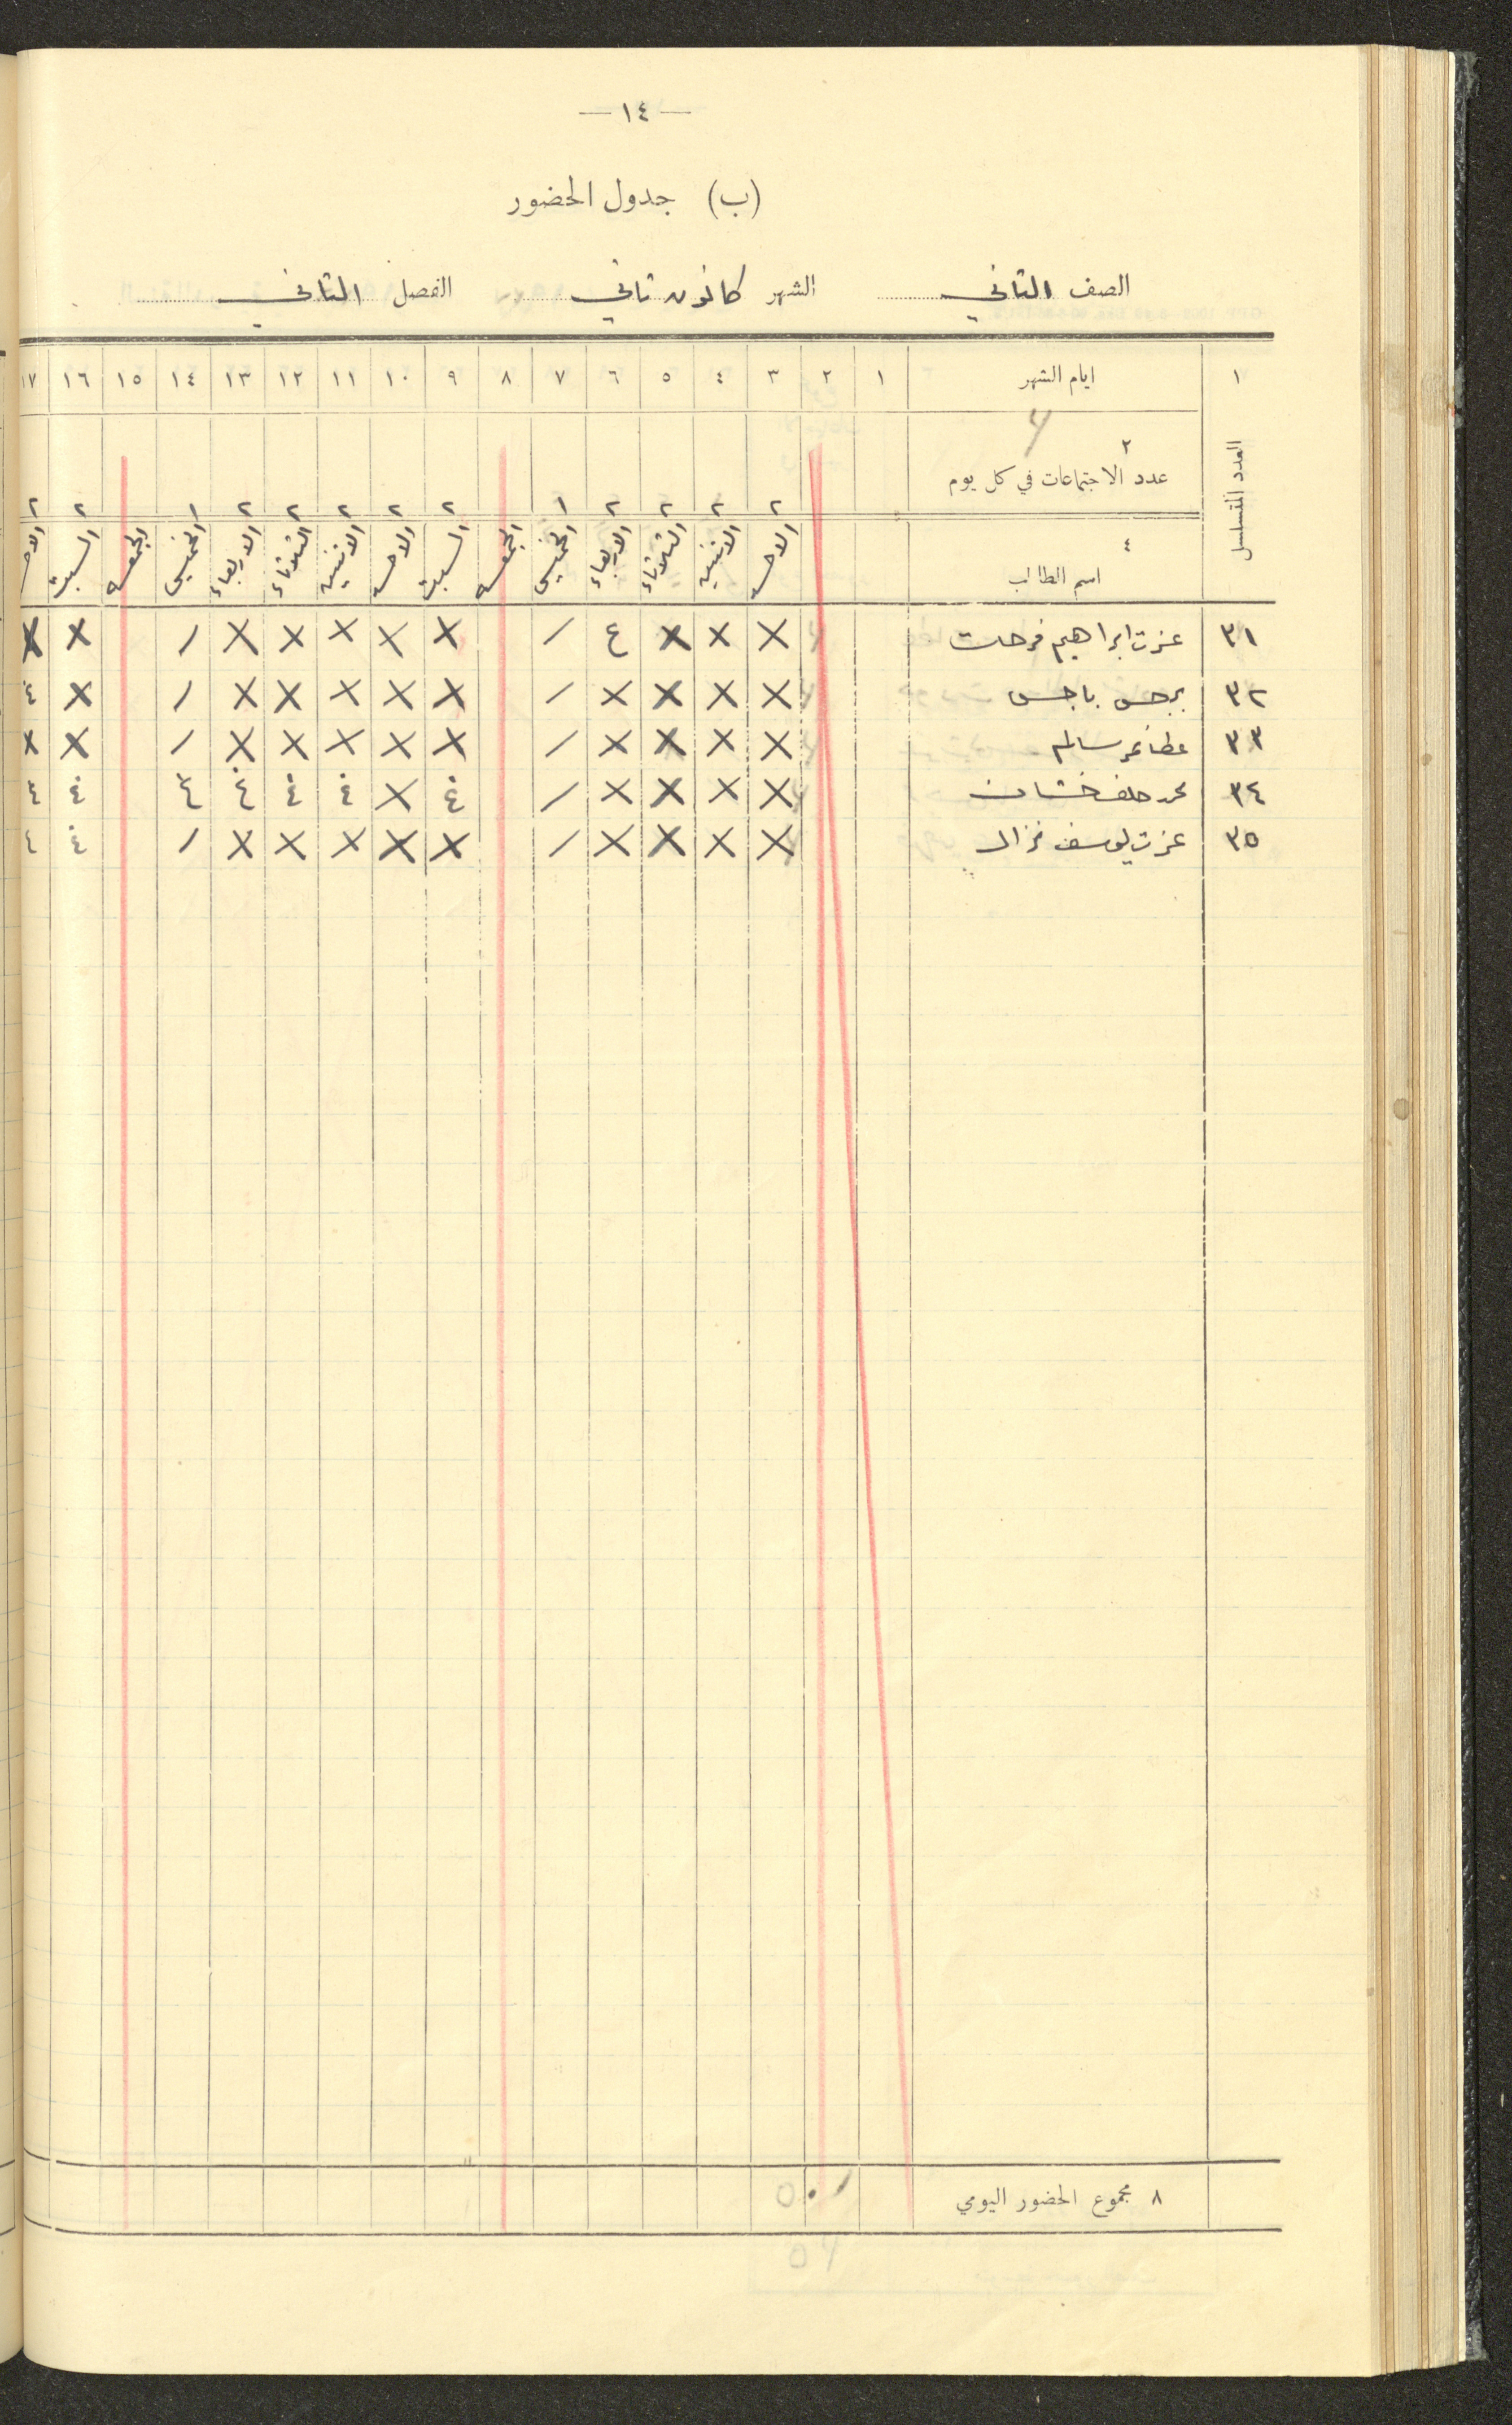 — ١٤ —
(ب) جدول الحضور
الصف الثاني الشهر كانون ثاني الفصل الثاني
١ ايام الشهر ١ ٢ ٣ ٤ ٥ ٦ ٧ ٨ ٩ ١٠ ١١ ١٢ ١٣ ١٤ ١٥ ١٦ ١٧
العدد المتسلسل
٢
عدد الاجتماعات في كل يوم ٢ ٢ ٢ ٢ ١ ٢ ٢ ٢ ٢ ٢ ١ ٢ ٢
٤
اسم الطالب الاحد الاثنين الثلاثاء الاربعاء الخميس الجمعه السبت الاحد الاثنين الثلاثاء الاربعاء الخميس الجمعه السبت الاحد
٣١ عزت ابراهيم فرحات X X X ع / X X X X X / X X
٣٢ برجس باجس X X X X / X X X X X / X غ
٣٣ عطا عمر سالم X X X X / X X X X X / X X
٣٤ محمد خلف خشان X X X X / غ X غ غ غ غ غ غ
٣٥ عزت يوسف غزال X X X X / X X X X X / غ غ
٨ مجموع الحضور اليومي